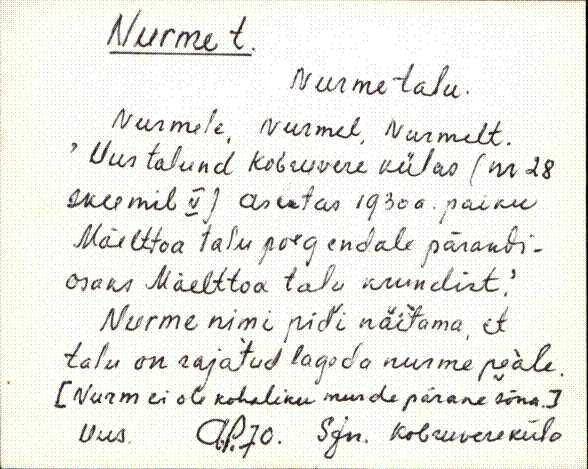 Nurme t.
Nurme talu.
Nurmele, Nurmel, Nurmelt.
'Uustalund Kobruvere külas (nr 28
skeemil V) asutas 1930 a. paiku
Mäelttoa talu poeg endale pärandi-
osaks Mäelttoa talu krundist.'
Nurme nimi pidi näitama, et
talu on rajatud lageda nurme peale.
[Nurm ei ole kohaliku murde pärane sõna.]
Uus. 70. Sgn. Kobruvere küla